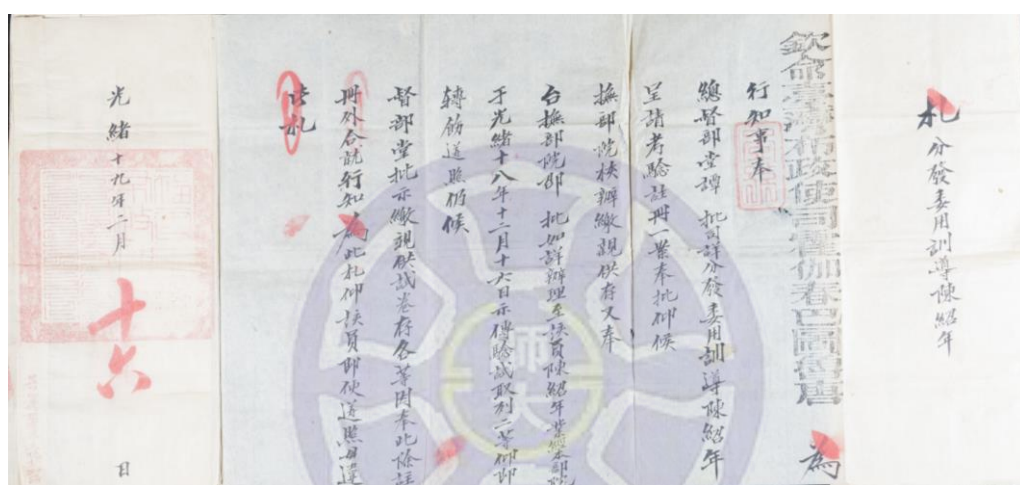 札
分發委用訓導陳紹年
欽命臺灣布政使司
為
行知事奉
總督部堂譚 批司詳分發委用訓導陳紹年
呈請考驗註冊一案奉批仰候
撫部院核辦繳親供存又奉
台撫部院邵 批如詳辦理至該員陳紹年業經本部院
于光緒十八年十二月十六日示傳驗試取列二等仰即
轉飭遵照仍候
督部堂批示繳親供試卷存各等因奉此除註
冊外合就行知為此札仰該員即便遵照毋違
此札
光緒十九年二月
十六
日
師大